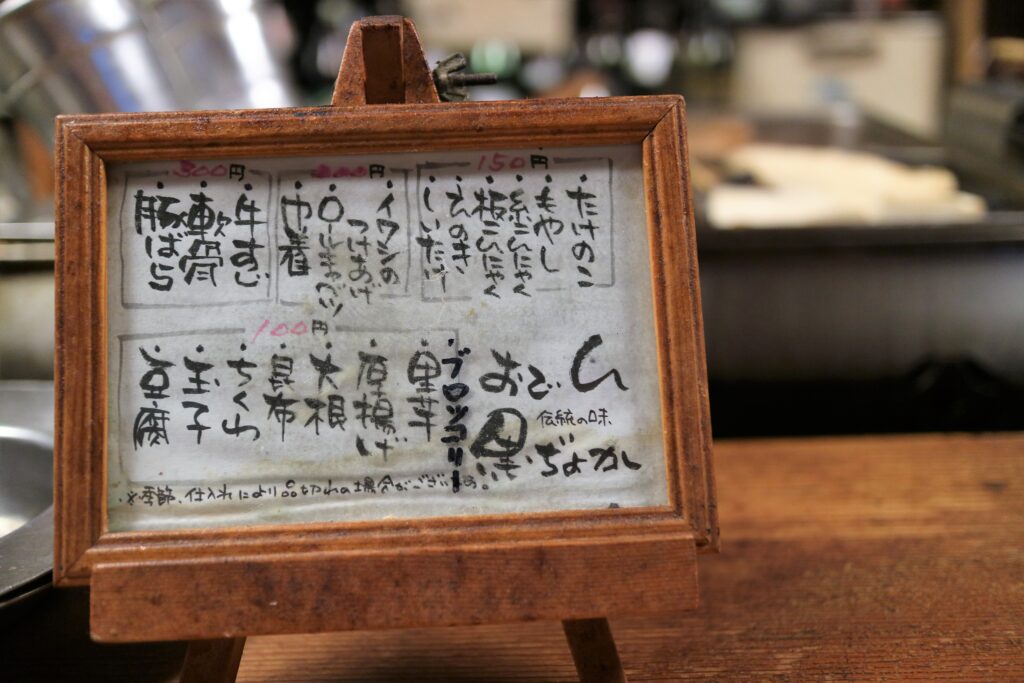 150円
・たけのこ
・もやし
・糸こんにゃく
・板こんにゃく
・えのき
・しいたけ
200円
・イワシの
つけあげ
・ロールキャベツ
・巾着
300円
・牛すじ
・軟骨
・豚ばら
おでん
伝統の味
黒ぢょか
100円
・ブロッコリー
・里芋
・厚揚げ
・大根
・昆布
・ちくわ
・玉子
・豆腐
※季節、仕入れにより品切れの場合がございます。